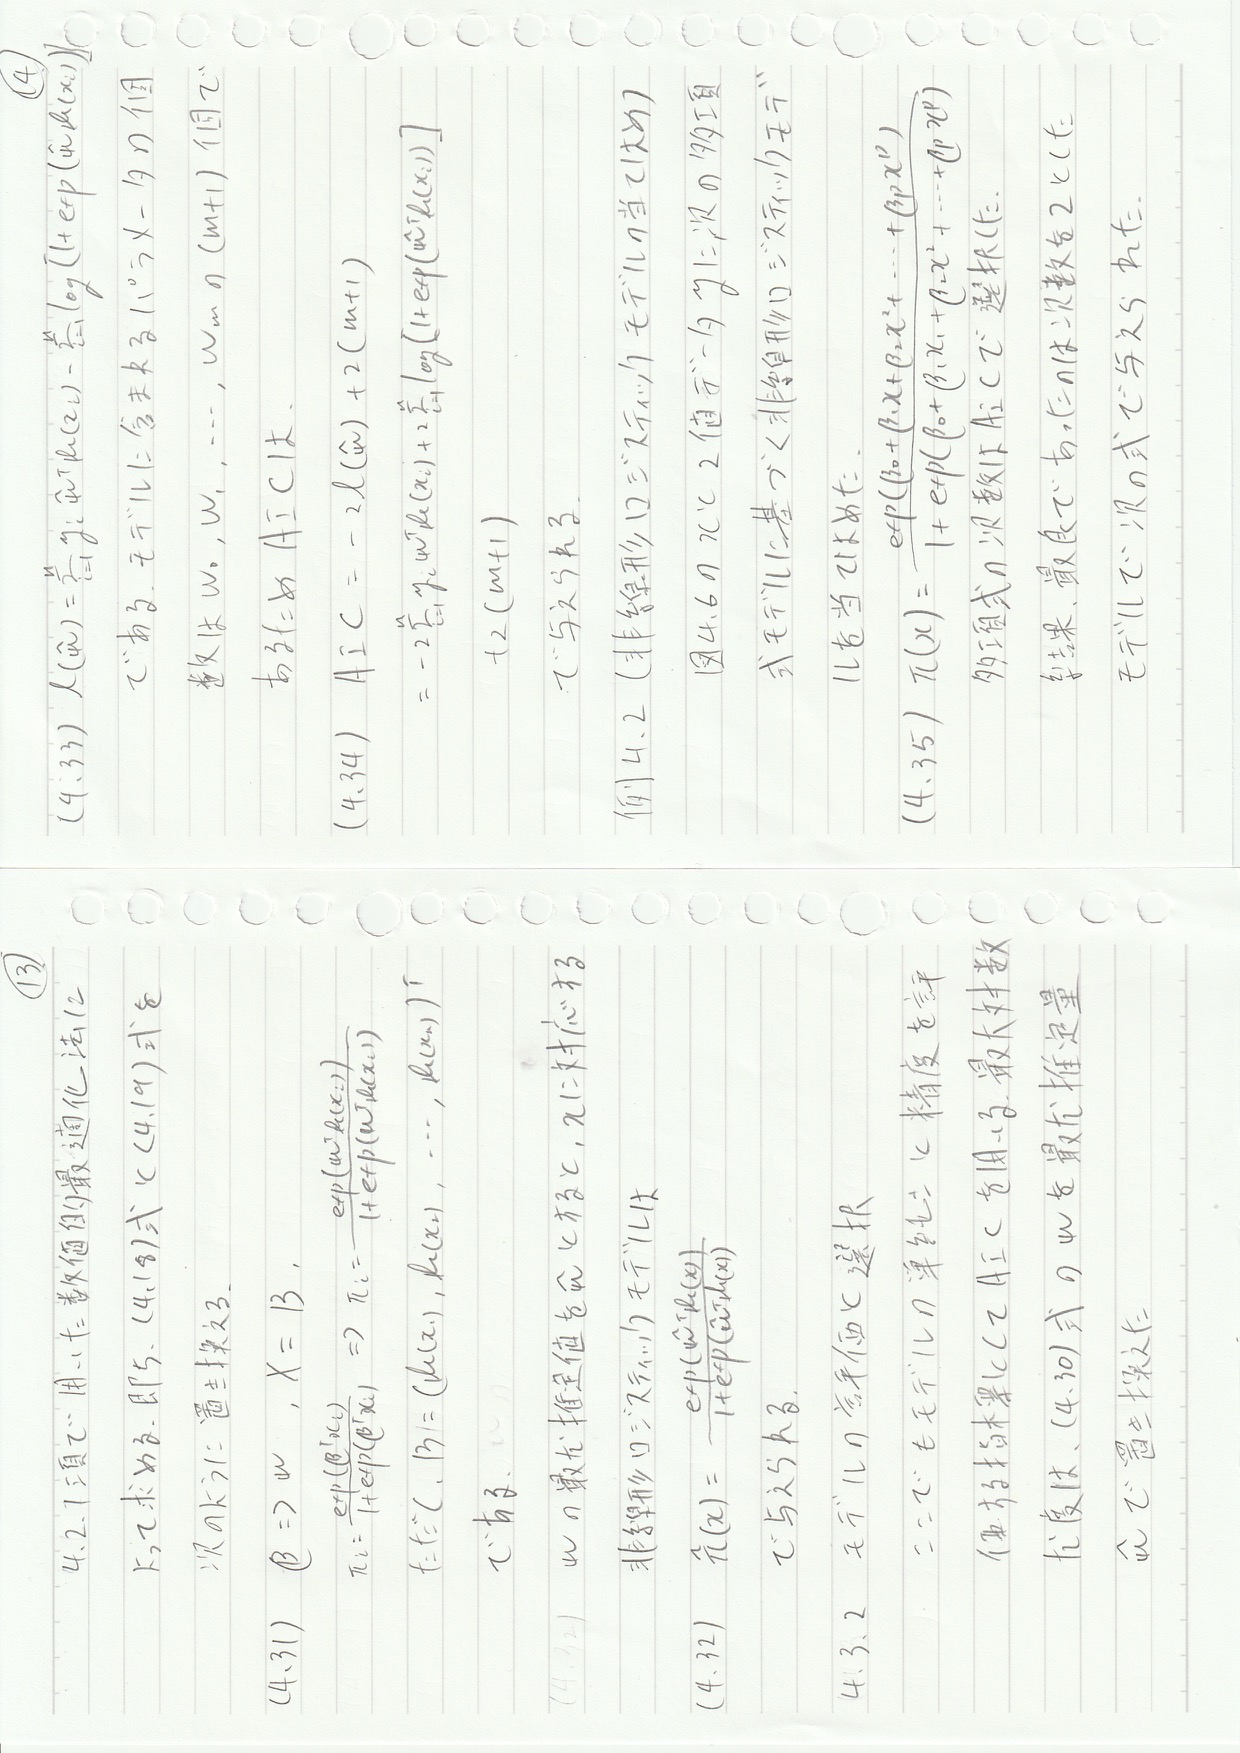 ⑬
4.2.1項で用いた数値的最適化法に
よって求める.即ち、(4.18)式と(4.19)式を
次のように置き換える.
(4.31) β => w , X = B ,
π_i = exp(β^T x_i) / 1+exp(β^T x_i) => π_i = exp(w^T b(x_i)) / 1+exp(w^T b(x_i))
ただし、B = (b(x_1), b(x_2), ..., b(x_n))^T
である.
(4.32) wの最尤推定値をŵとすると, xに対応する
非線形ロジスティックモデルは
(4.32) π̂(x) = exp(ŵ^T b(x)) / 1+exp(ŵ^T b(x))
で与えられる.
4.3.2 モデルの評価と選択
ここでもモデルの単純さと精度を評
価する指標としてAICを用いる.最大対数
尤度は、(4.30)式のwを最尤推定量
ŵで置き換えた
⑭
(4.33) l(ŵ) = Σ_{i=1}^n y_i ŵ^T b(x_i) - Σ_{i=1}^n log[1+exp(ŵ b(x_i))]
である.モデルに含まれるパラメータの個
数は w_0, w_1, ---, w_m の (m+1) 個で
あるため AICは.
(4.34) AIC = -2l(ŵ) + 2(m+1)
= -2 Σ_{i=1}^n y_i w^T b(x_i) + 2 Σ_{i=1}^n log[1+exp(ŵ^T b(x_i))]
+2(m+1)
で与えられる.
例4.2 (非線形ロジスティックモデルの当てはめ)
図4.6のxと2値データyに次の多項
式モデルに基づく非線形ロジスティックモデ
ルを当てはめた.
(4.35) π(x) = exp(β_0+β_1x+β_2x^2+ ... +β_px^p) / 1+exp(β_0+β_1x_1+β_2x^2+...+β_px^p)
多項式の次数はAICで選択した.
結果、最良であったのは次数を2とした
モデルで次の式で与えられた.